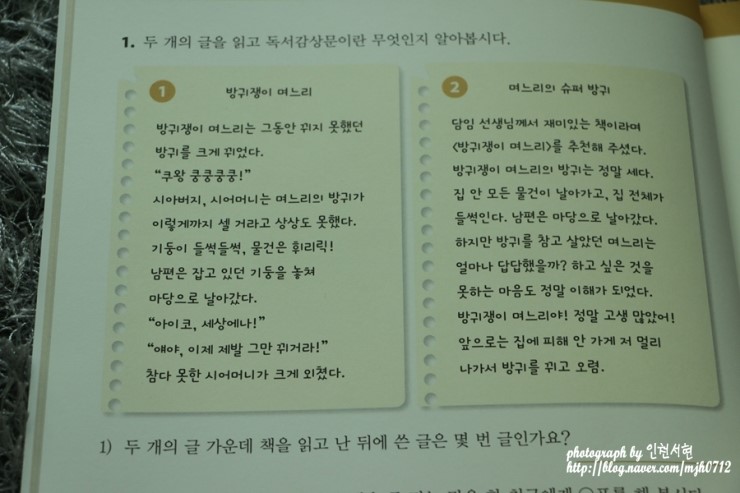 1. 두 개의 글을 읽고 독서감상문이란 무엇인지 알아봅시다.
1 방귀쟁이 며느리
방귀쟁이 며느리는 그동안 뀌지 못했던
방귀를 크게 뀌었다.
“쿠왕 쿵쿵쿵쿵!”
시아버지, 시어머니는 며느리의 방귀가
이렇게까지 셀 거라고 상상도 못했다.
기둥이 들썩들썩, 물건은 휘리릭!
남편은 잡고 있던 기둥을 놓쳐
마당으로 날아갔다.
“아이코, 세상에나!”
“얘야, 이제 제발 그만 뀌거라!”
참다 못한 시어머니가 크게 외쳤다.
2 며느리의 슈퍼 방귀
담임 선생님께서 재미있는 책이라며
<방귀쟁이 며느리>를 추천해 주셨다.
방귀쟁이 며느리의 방귀는 정말 세다.
집 안 모든 물건이 날아가고, 집 전체가
들썩인다. 남편은 마당으로 날아갔다.
하지만 방귀를 참고 살았던 며느리는
얼마나 답답했을까? 하고 싶은 것을
못하는 마음도 정말 이해가 되었다.
방귀쟁이 며느리야! 정말 고생 많았어!
앞으로는 집에 피해 안 가게 저 멀리
나가서 방귀를 뀌고 오렴.
1) 두 개의 글 가운데 책을 읽고 난 뒤에 쓴 글은 몇 번 글인가요?
photograph by 인현서현
http://blog.naver.com/mjh0712